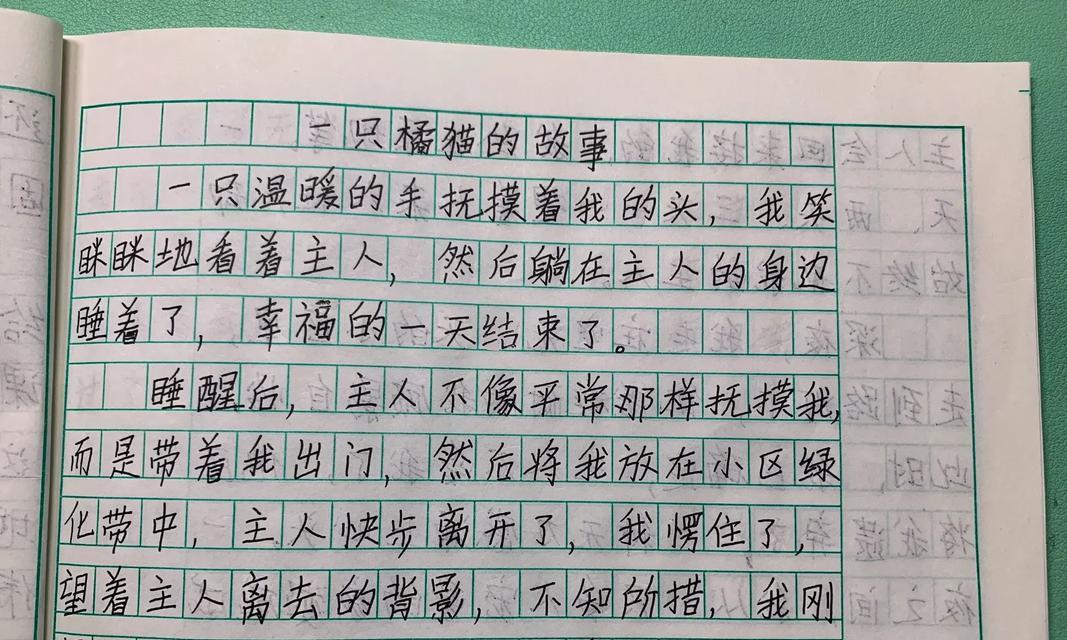 一只橘猫的故事
一只温暖的手抚摸着我的头，我笑
眯眯地看着主人，然后躺在主人的身边
睡着了，幸福的一天结束了。
睡醒后，主人不像平常那样抚摸我，
而是带着我出门，然后将我放在小区绿
化带中，主人快步离开了，我愣住了，
望着主人离去的背影，不知所措，我刚